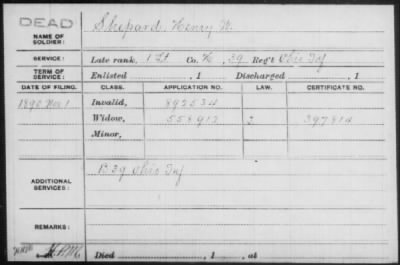 DEAD
NAME OF SOLDIER: Shepard, Henry W.
SERVICE: Late rank, 1 Lt Co. K, 39 Reg't Ohio Inf
TERM OF SERVICE: Enlisted , 1 Discharged , 1
DATE OF FILING. CLASS. APPLICATION NO. LAW. CERTIFICATE NO.
1890 Nov. 1 Invalid, 892534
Widow, 558912 2 397814
Minor,
ADDITIONAL SERVICES: B 39 Ohio Inf
REMARKS:
Died , 1 , at